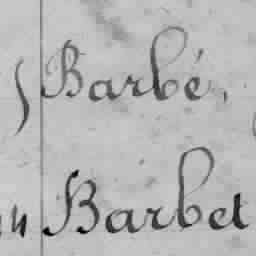 Barbé,
Barbet